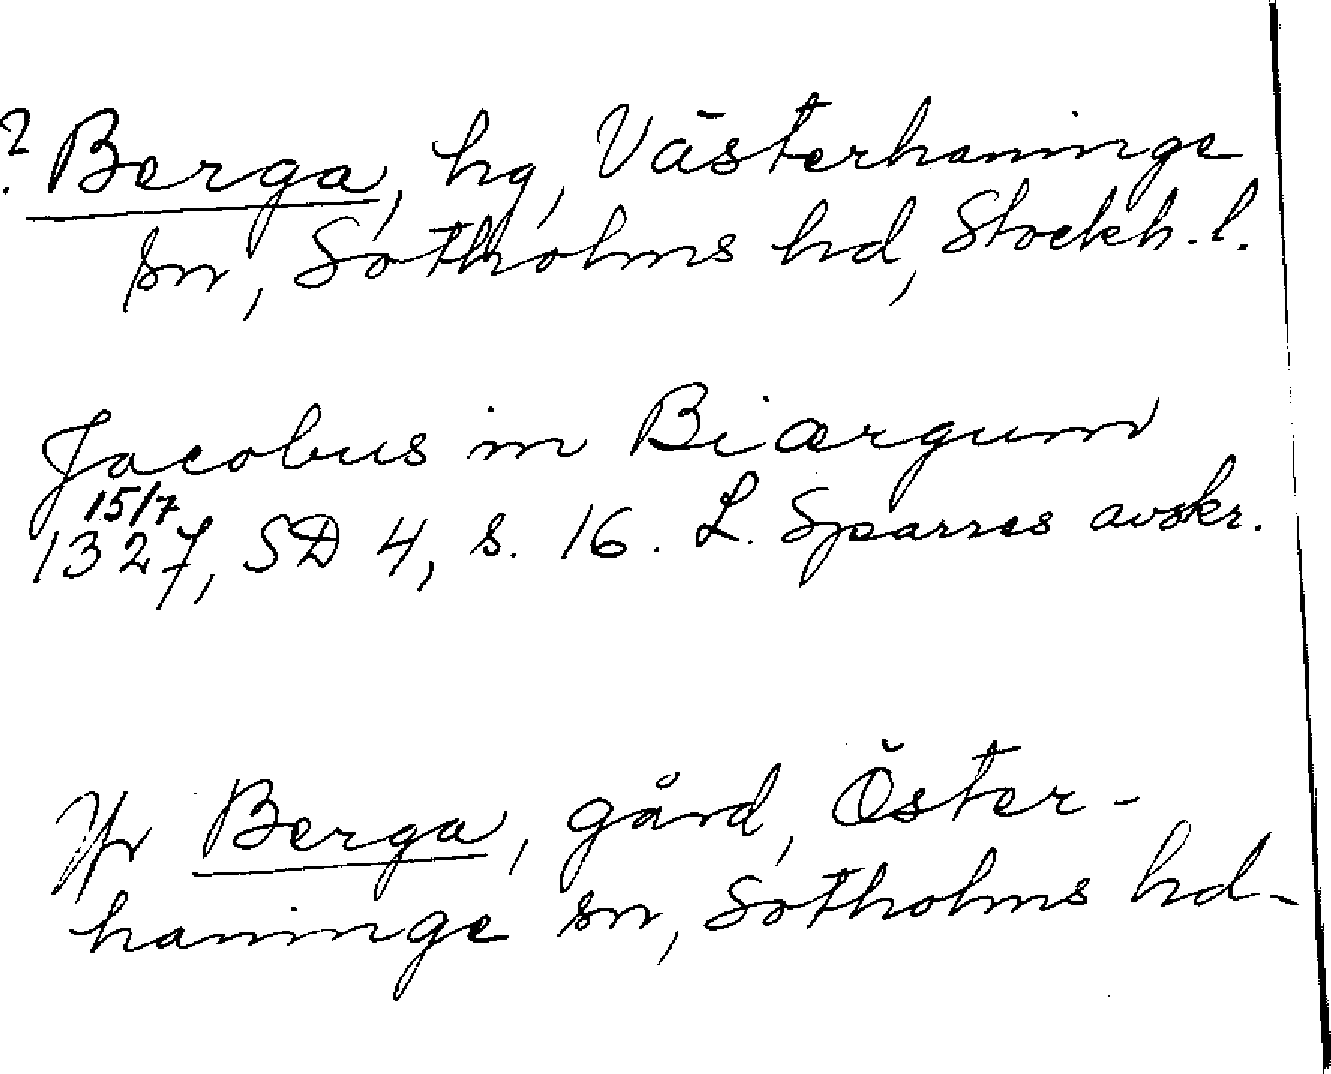 ? Berga, hg, Västerhaninge
sn, Sotholms hd, Stockh. l.
Jacobus in Biærgum
15/7
1327, SD 4, s. 16. L. Sparres avskr.
Jfr Berga, gård, Öster-
haninge sn, Sotholms hd.